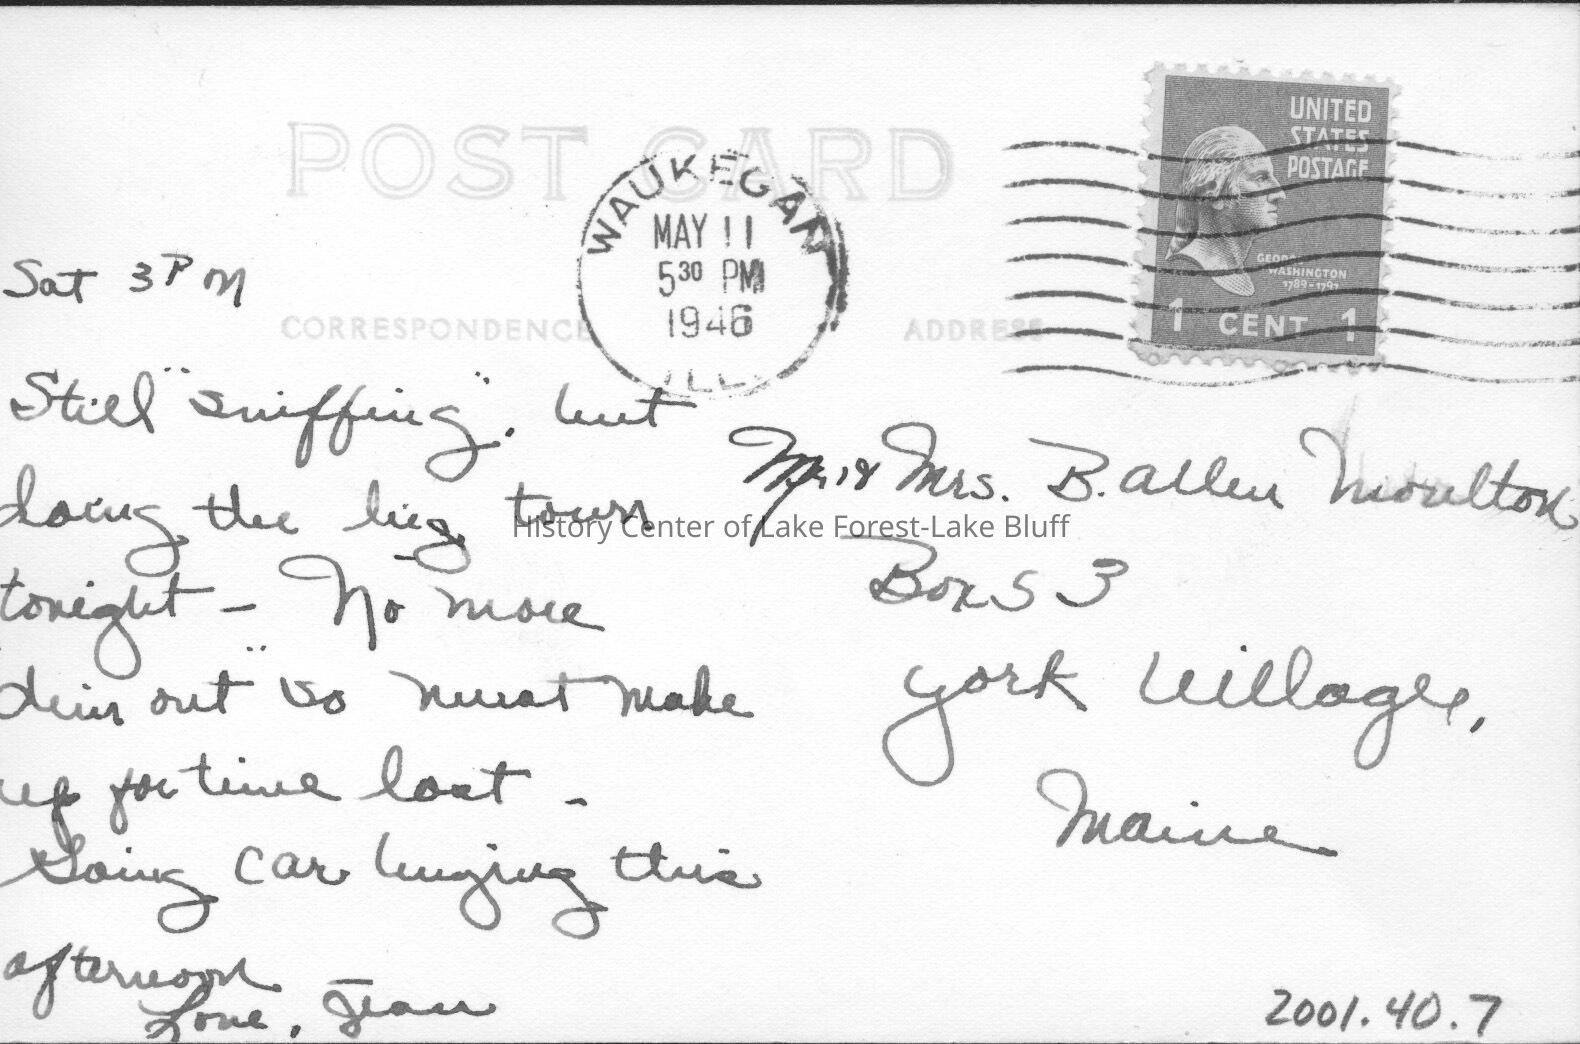 POST CARD
WAUKEGAN
MAY 11
5 30 PM
1946
ILL.
UNITED
STATES
POSTAGE
GEORGE
WASHINGTON
1789-1797
1 CENT 1
Sat 3 PM
CORRESPONDENCE
ADDRESS
Still "sniffing", but
doing the big town
tonight - No more
"dim out" so must make
up for time lost -
Going car buying this
afternoon
Love, Jean
Mr. & Mrs. B. Allen Moulton
Box 53
York Village,
Maine
History Center of Lake Forest-Lake Bluff
2001.40.7